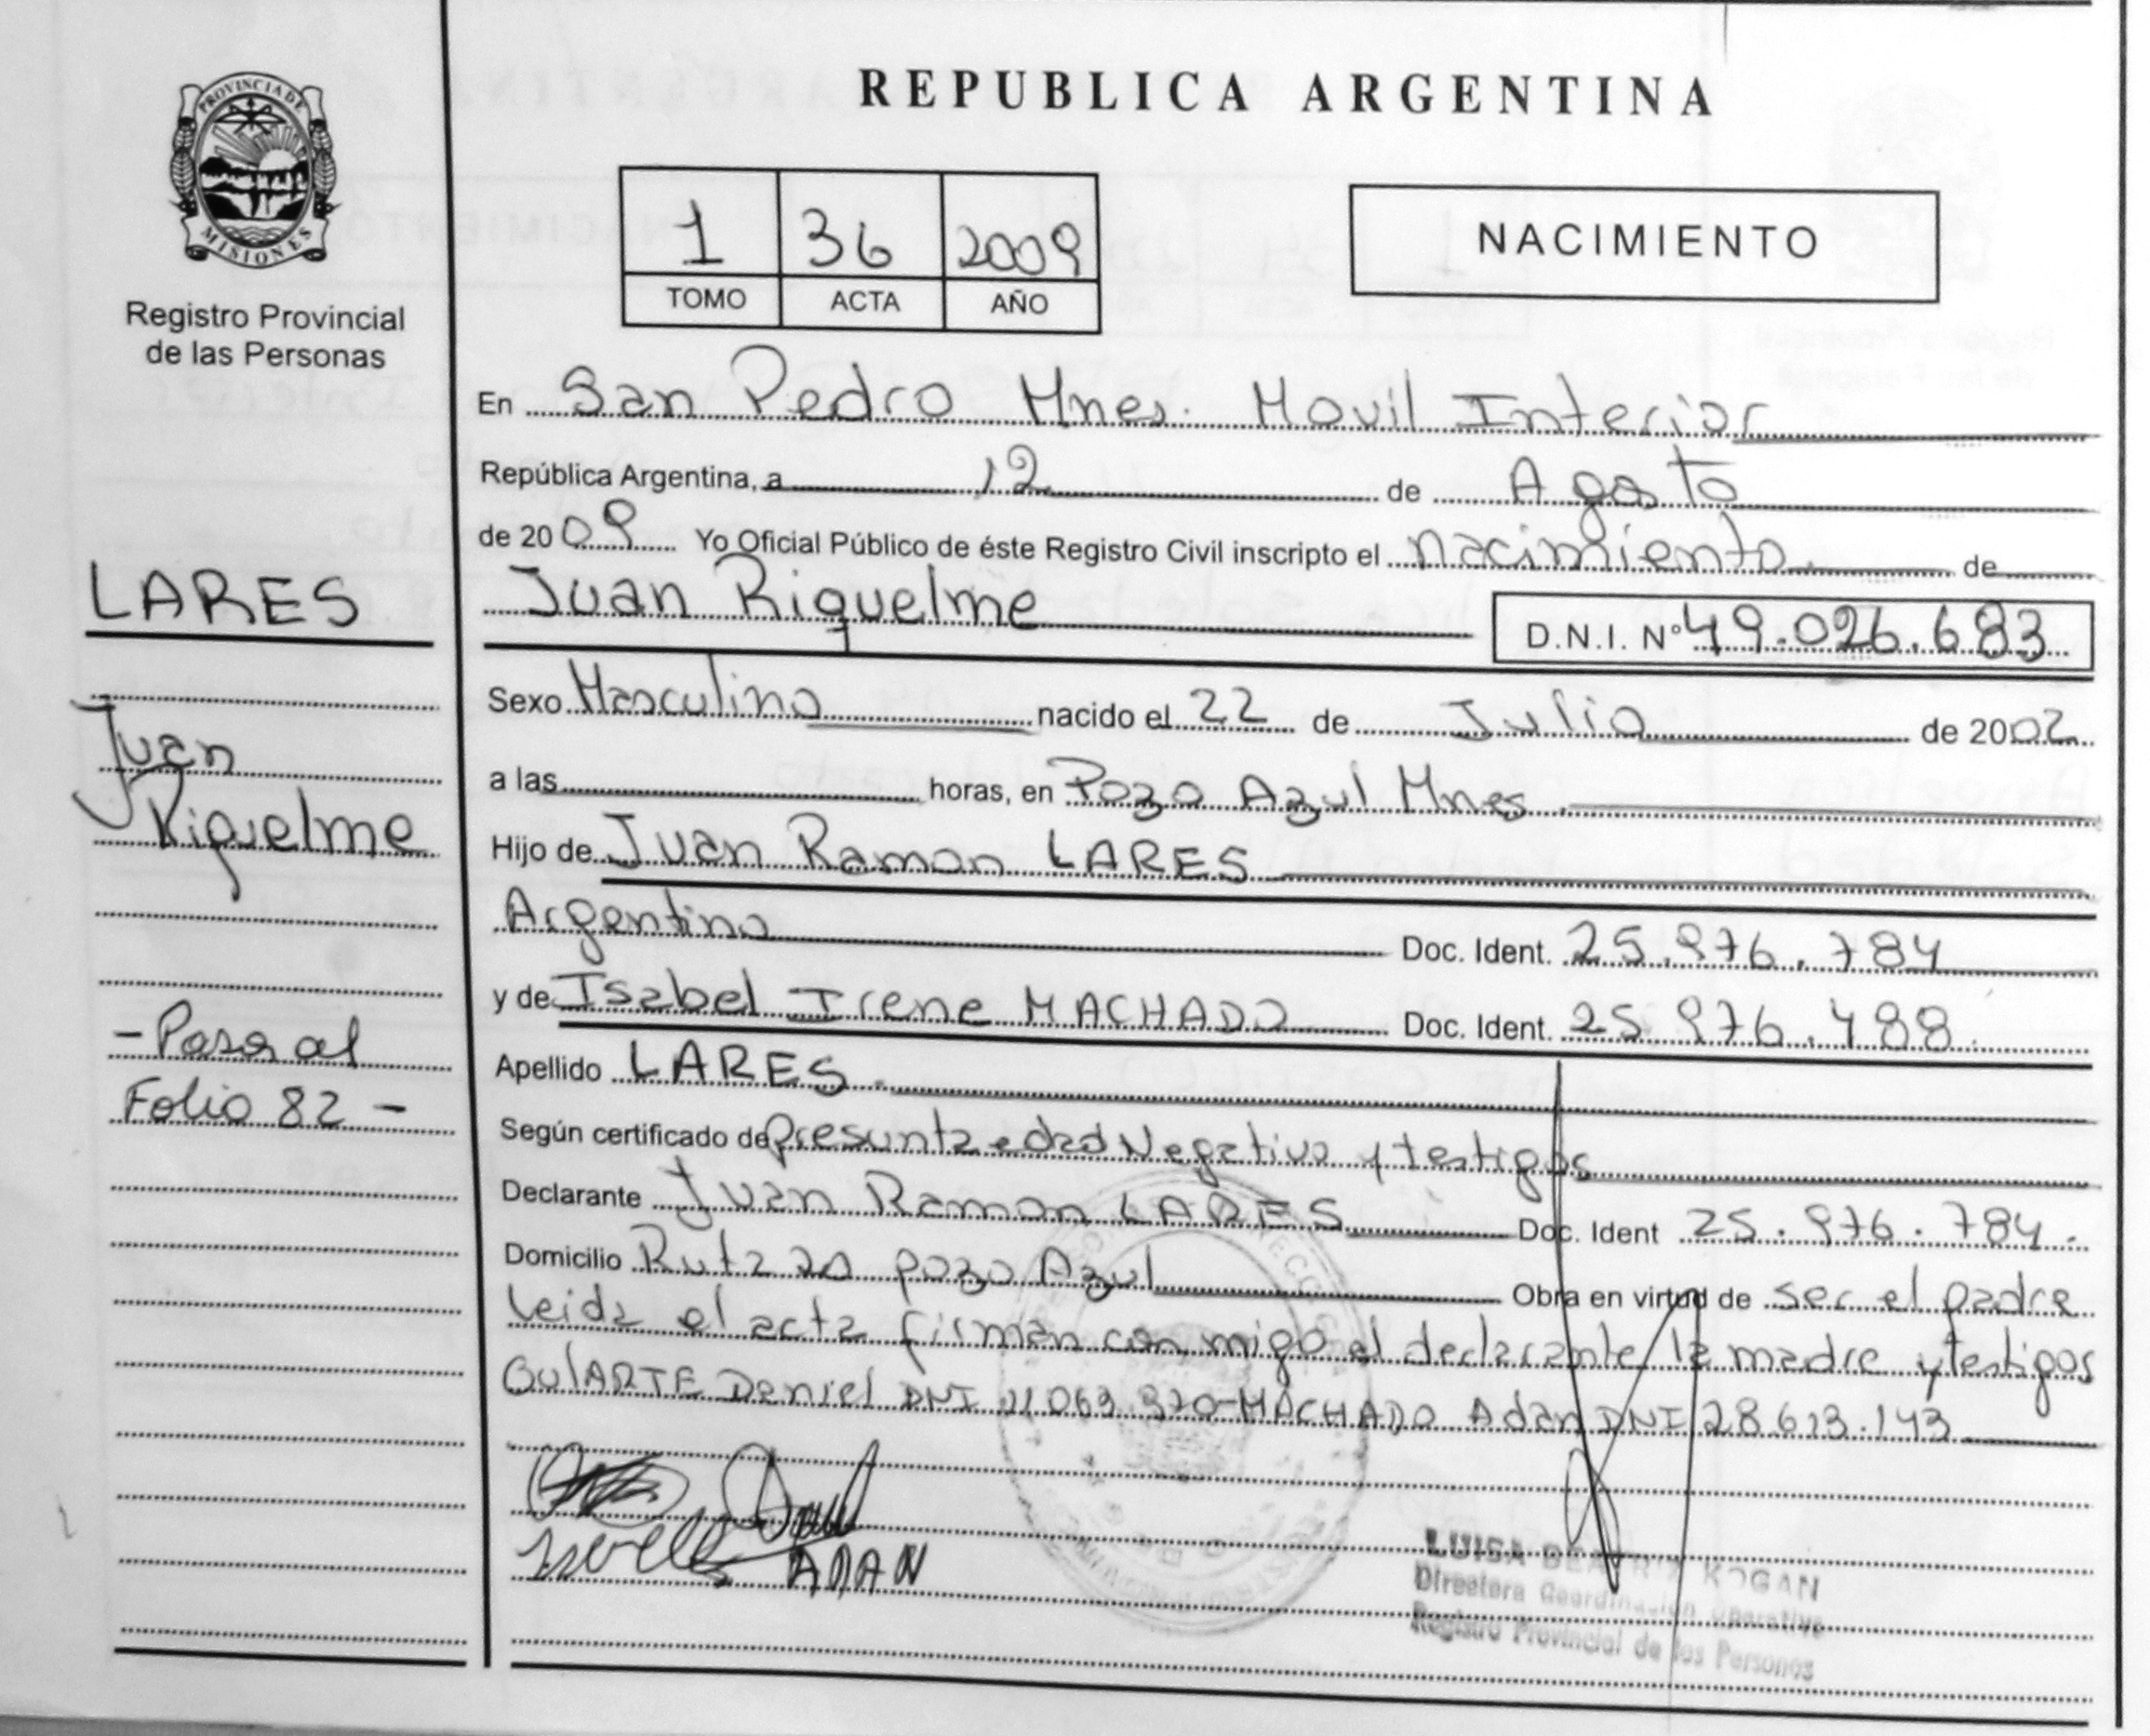 PROVINCIA DE
MISIONES
Registro Provincial
de las Personas
LARES
Juan
Riquelme
- Pasa al
Folio 82 -
REPUBLICA ARGENTINA
1 36 2009
TOMO ACTA AÑO
NACIMIENTO
En San Pedro Mnes. Movil Interior
República Argentina, a 12 de Agosto
de 2009 Yo Oficial Público de éste Registro Civil inscripto el nacimiento de
Juan Riquelme D.N.I. Nº 49.026.683
Sexo Masculino nacido el 22 de Julio de 2002
a las horas, en Pozo Azul Mnes.
Hijo de Juan Ramon LARES
Argentino Doc. Ident. 25.976.784
y de Isabel Irene MACHADO Doc. Ident. 25.976.488
Apellido LARES.
Según certificado de presunta edad Negativo y testigos
Declarante Juan Ramon LARES Doc. Ident 25.976.784.
Domicilio Ruta 20 pozo Azul Obra en virtud de ser el padre
leida el acta firman con migo el declarante la madre y testigos
GulARTE Daniel DNI 11.063.970-MACHADO Adan DNI 28.613.143
ADAN
LUISA BEATRIZ KOGAN
Directora Coordinación Operativa
Registro Provincial de las Personas